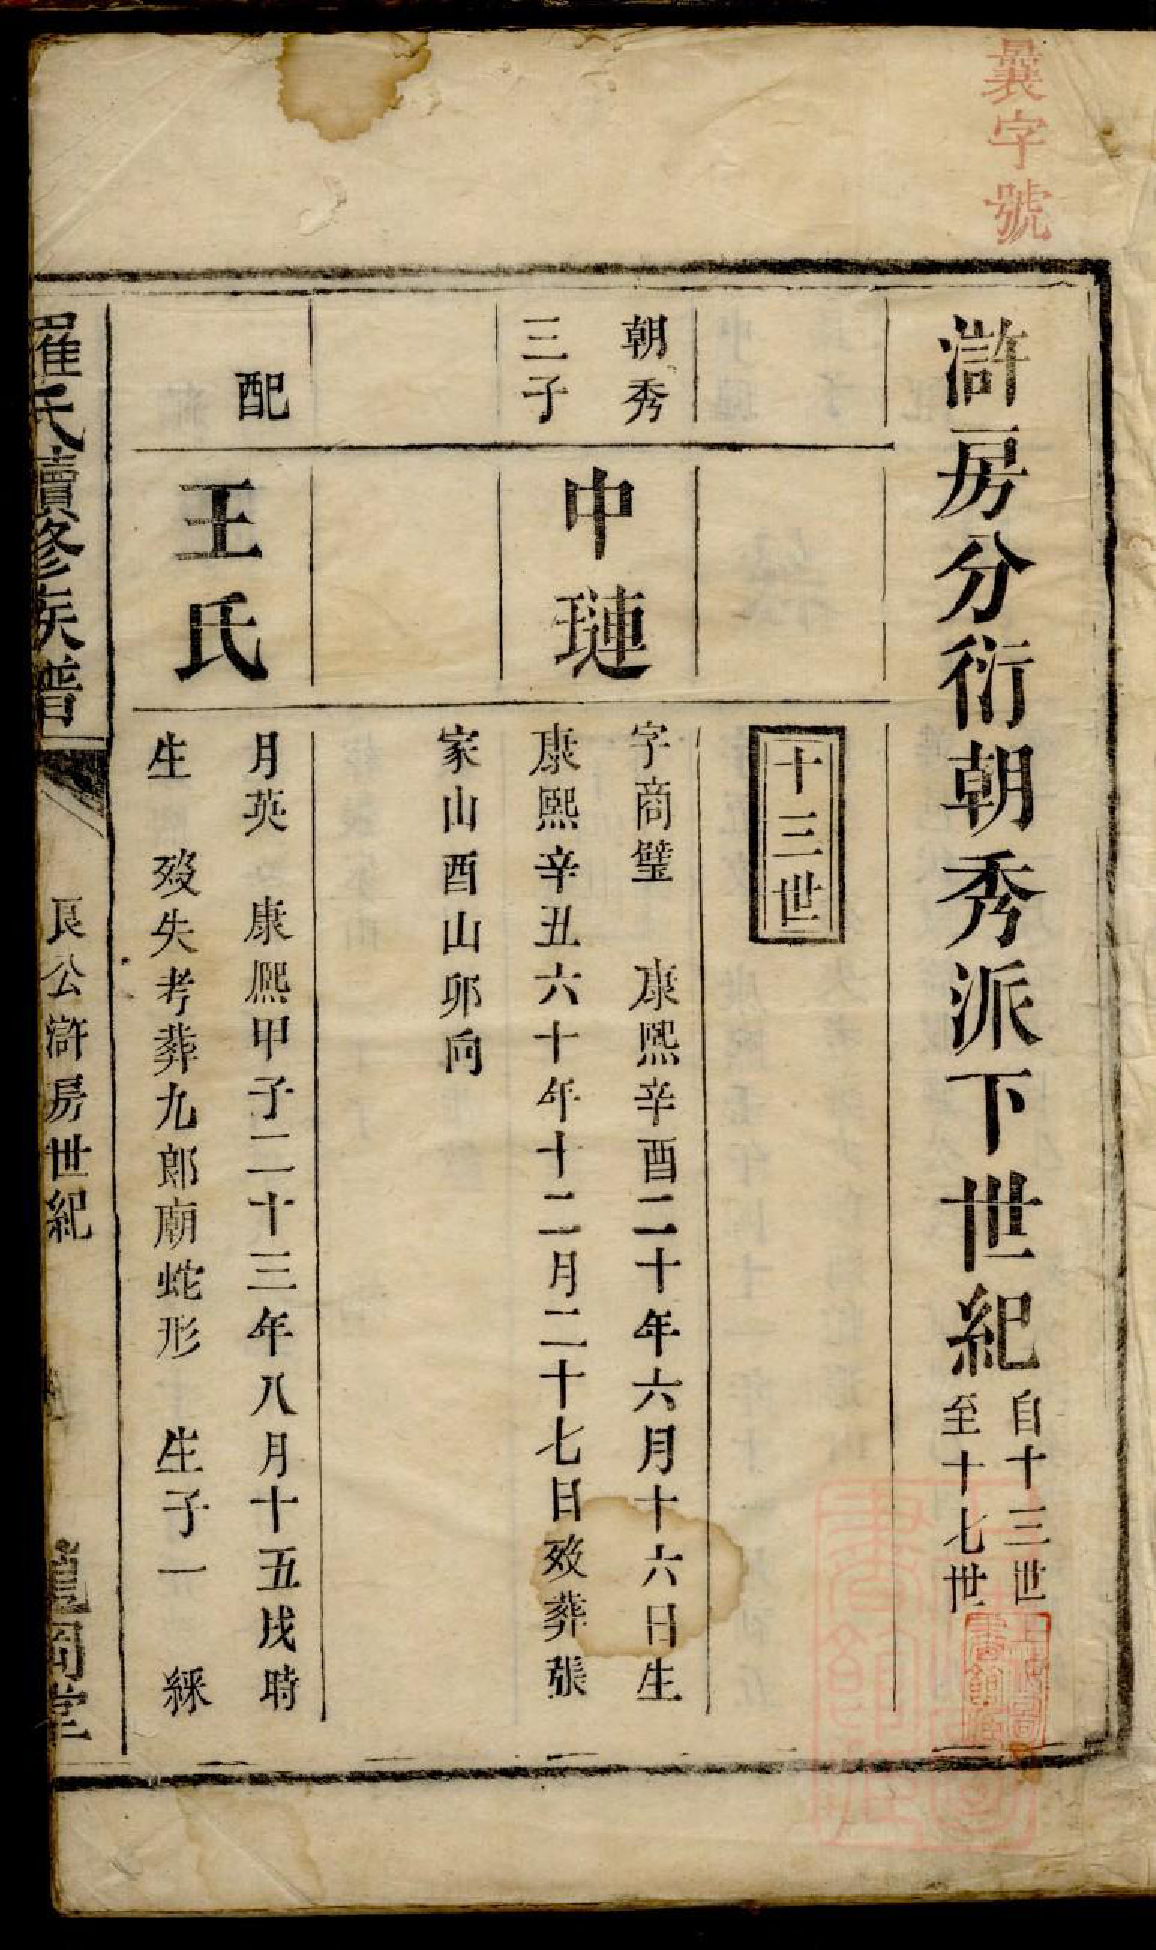 彝字號
滸房分衍朝秀派下世紀
自十三世
至十七世
十三世
朝秀
三子
中璉
字商璧 康熙辛酉二十年六月十六日生
康熙辛丑六十年十二月二十七日歿葬張
家山酉山卯向
配
王氏
月英 康熈甲子二十三年八月十五戌時
生 歿失考葬九郎廟蛇形 生子一 綵
羅氏續修族譜
艮公滸房世紀
龍岡堂